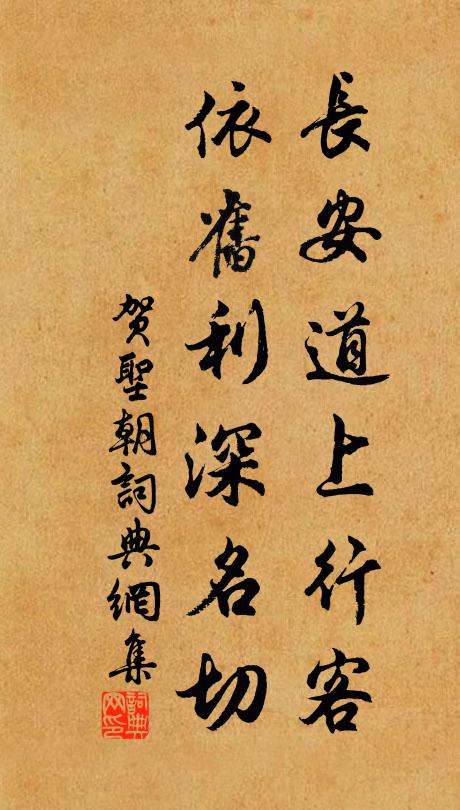 長安道上行客
依舊利深名切
贺聖朝詞典網集
詞典网印